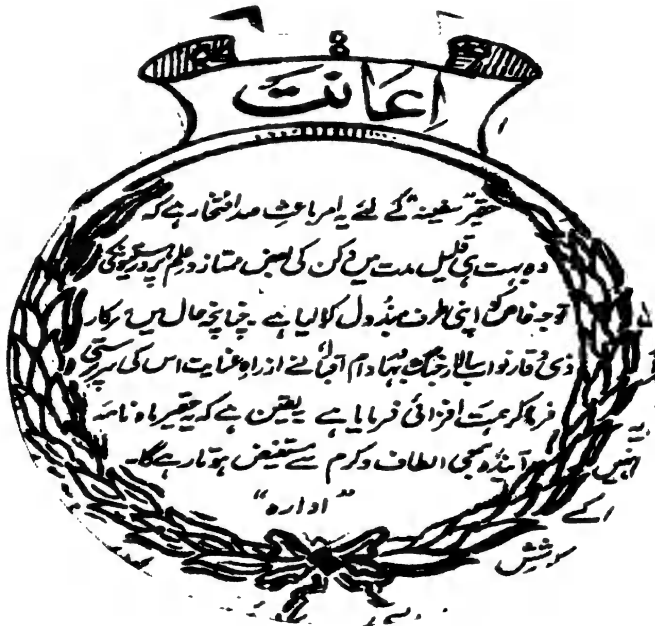 اِعانت
حقیر "سفینہ" کے لئے یہ امر باعثِ صد افتخار ہے کہ
وہ بہت ہی قلیل مدت میں دکن کی بعض ممتاز و علم پرور کی
توجہ خاص اپنی طرف مبذول کرالیا ہے۔ چنانچہ حال میں سرکار
ذی وقار نواب سالار جنگ بہادر دام اقبالہٗ نے از راہِ عنایت اس کی سرپرستی
فرما کر ہمت افزائی فرمایا ہے یقین ہے کہ یہ حقیر ماہ نامہ
آیندہ بھی الطاف و کرم سے مستفیض ہوتا رہے گا۔
"ادارہ"
انہیں
اکے